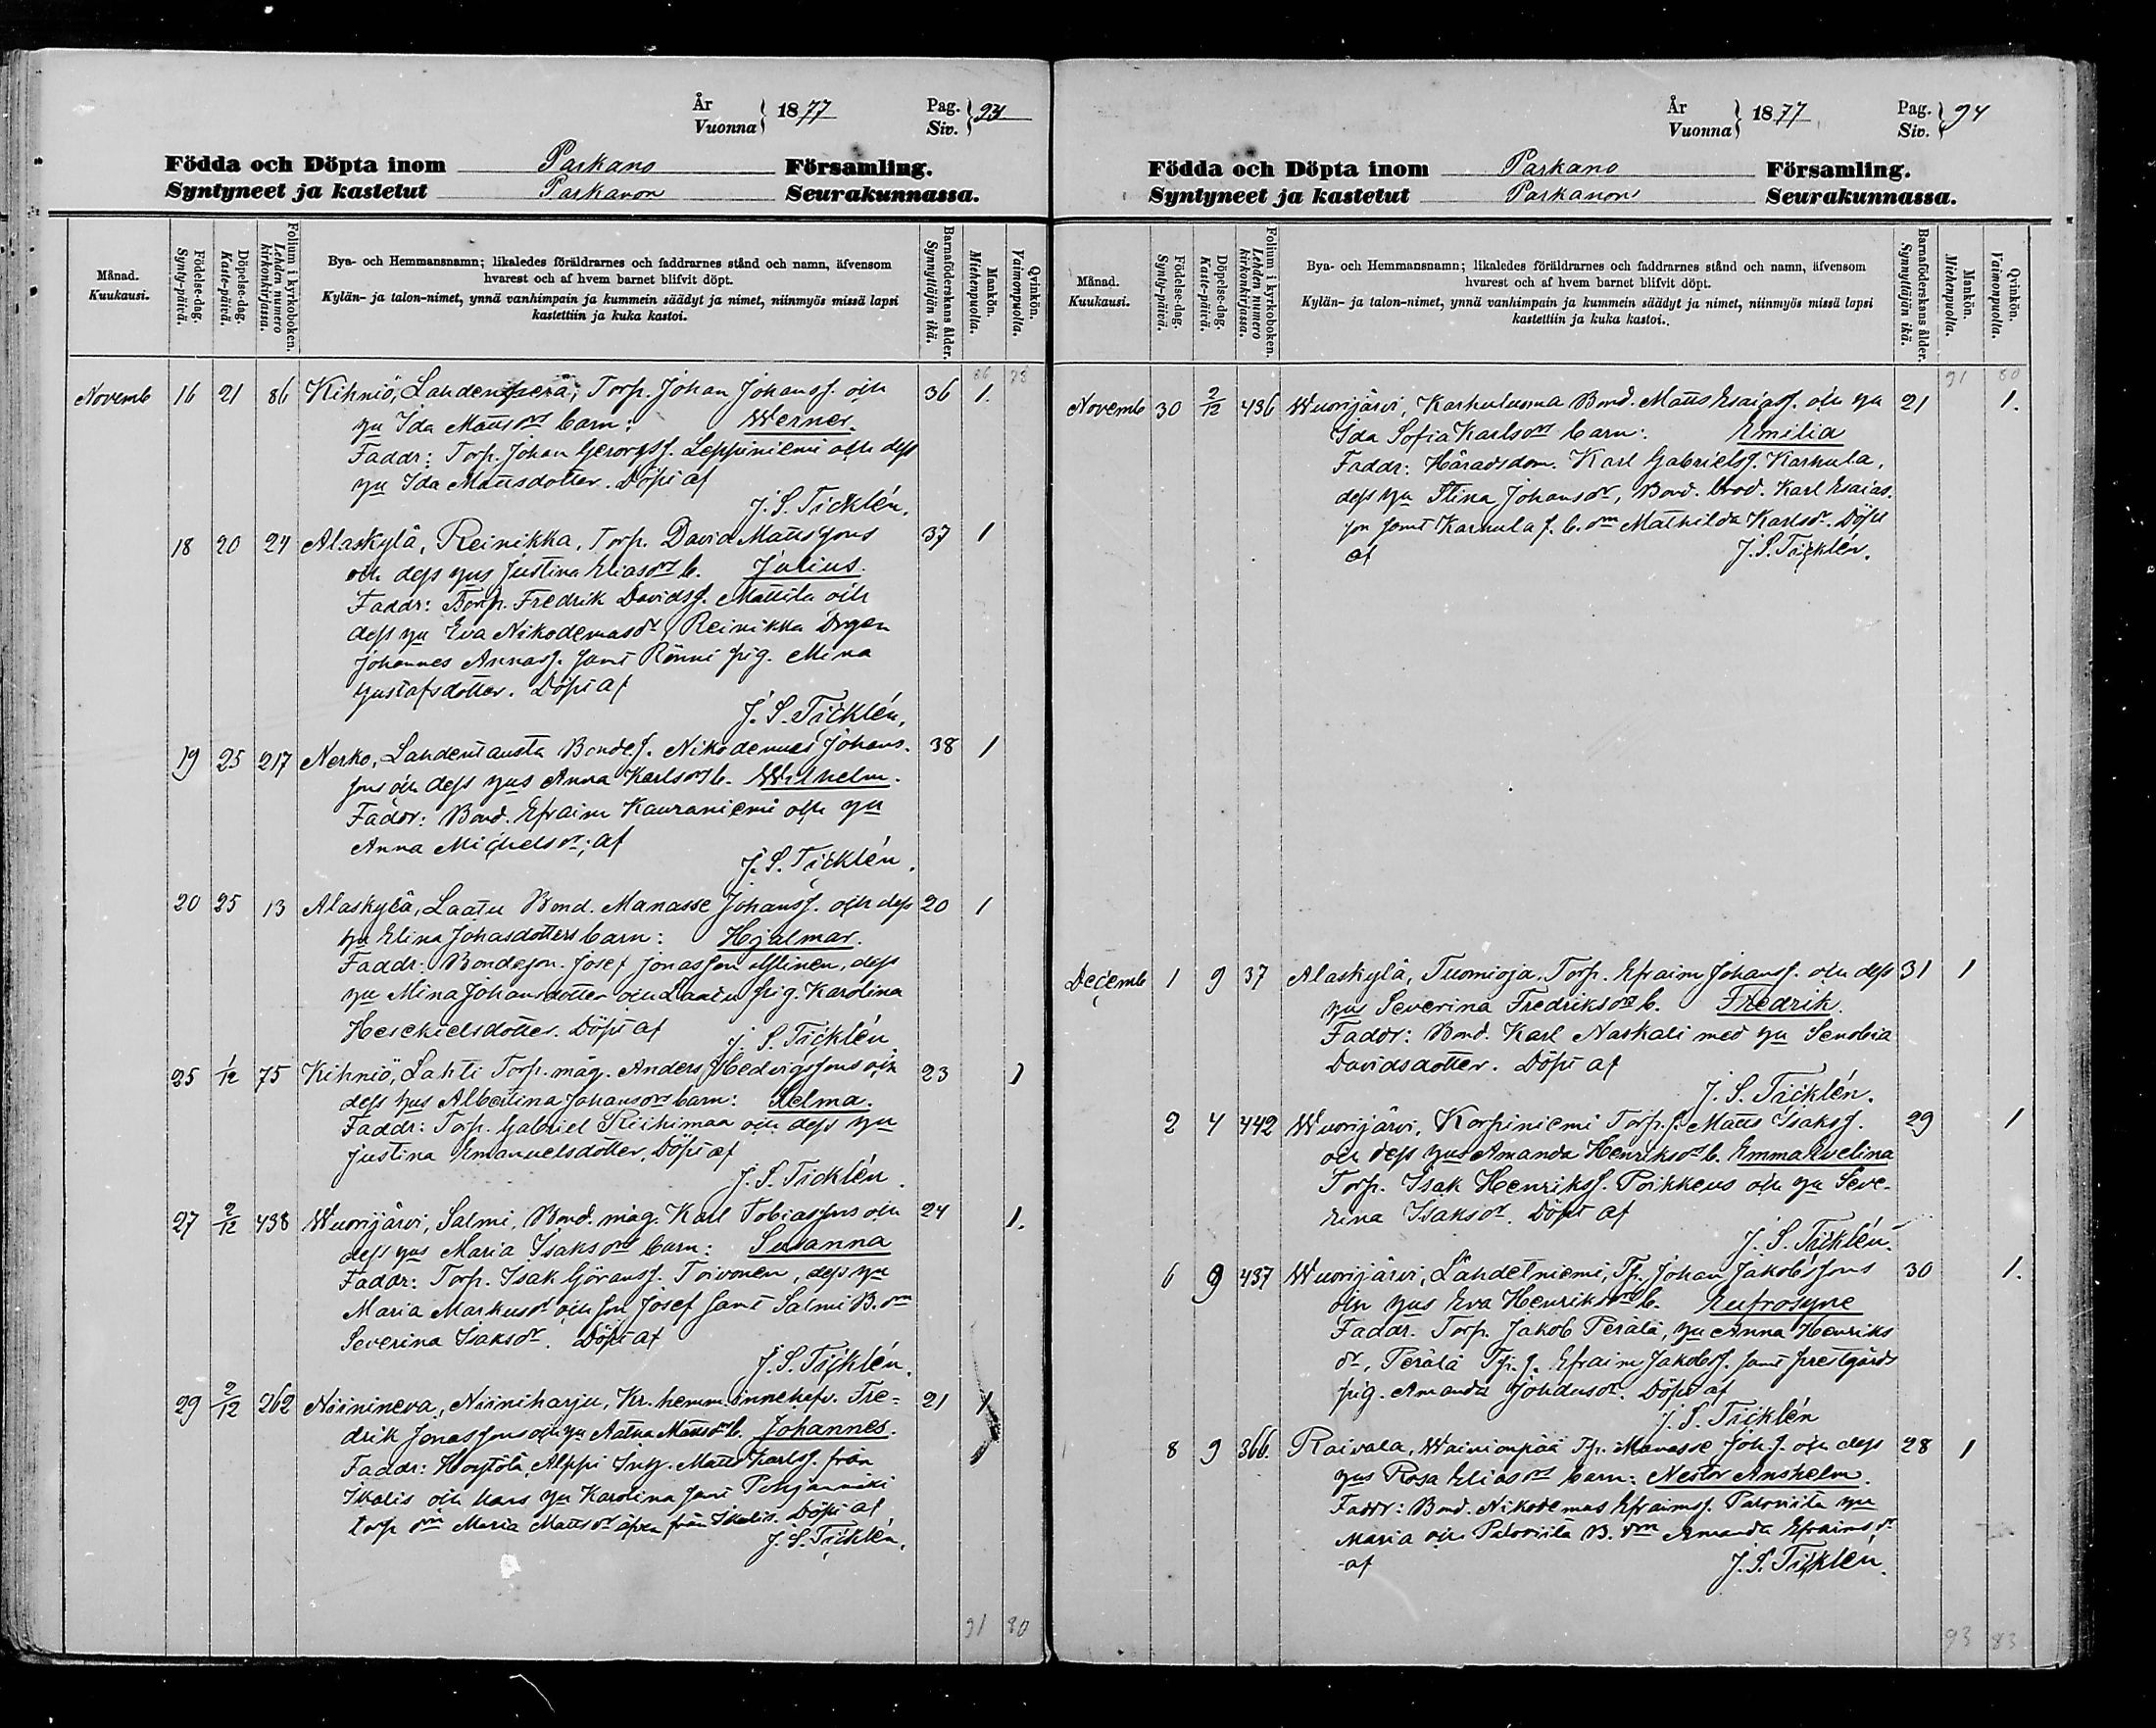 År
Vuonna } 1877
Pag.
Siv. } 93
Födda och Döpta inom Parkano Församling.
Syntyneet ja kastetut Parkanon Seurakunnassa.
Månad.
Kuukausi.
Födelse-dag.
Synty-päivä.
Döpelse-dag.
Kaste-päivä.
Folium i kyrkoboken.
Lehden numero
kirkonkirjassa.
Bya- och Hemmansnamn; likaledes föräldrarnes och faddrarnes stånd och namn, äfvensom
hvarest och af hvem barnet blifvit döpt.
Kylän- ja talon-nimet, ynnä vanhimpain ja kummein säädyt ja nimet, niinmyös missä lapsi
kastettiin ja kuka kastoi.
Barnaföderskans ålder.
Synnyttäjän ikä.
Mankön.
Miehenpuolta.
Qvinkön.
Vaimonpuolta.
86 78
Novemb 16 21 86 Kihniö, Lahdenperä, Torp. Johan Johanss. och 36 1.
hu Ida Mattsdrs barn: Werner.
Faddr: Torp. Johan Georgss. Leppiniemi och dess
hu Ida Mattsdotter. Döpt af
J. S. Ticklén.
18 20 24 Alaskylä, Reinikka, Torp. David Mattssons 37 1
och dess hus Justina Eliasdrs b. Julius.
Faddr: Torp. Fredrik Davidss. Mattila och
dess hu Eva Nikodemusdr, Reinikka Drgen
Johannes Annass. samt Rönni pig. Mina
Gustafsdotter. Döpt af
J. S. Ticklén.
19 25 217 Nerko, Lahdentausta Bondes. Nikodemus Johans- 38 1
sons och dess hus Anna Karlsdrs b. Wilhelm.
Faddr: Bond. Efraim Kauraniemi och hu
Anna Michelsdr; af
J. S. Ticklén.
20 25 13 Alaskylä, Laatu Bond. Manasse Johanss. och dess 20 1
hu Elina Johasdotters barn: Hjalmar.
Faddr: Bondeson. Josef Jonasson Alinen, dess
hu Mina Johansdotter och Laatu pig. Karolina
Heseckielsdotter. Döpt af
J. S. Ticklén
25 1/12 75 Kihniö, Lahti Torp. måg. Anders Hedvigssons och 23 1
dess hus Albertina Johansdrs barn: Selma.
Faddr: Torp. Gabriel Riihimaa och dess hu
Justina Emanuelsdotter, Döpt af
J. S. Ticklén.
27 2/12 438 Wuorijärvi, Salmi, Bond. måg. Karl Tobiassons och 24 1.
dess hus Maria Isaksdrs barn: Susanna
Faddr: Torp. Isak Göranss. Toivonen, dess hu
Maria Markusdr och son Josef samt Salmi B. dm
Severina Isaksdr. Döpt af
J. S. Ticklén.
29 2/12 262 Niinineva, Niiniharju, Kr. hemm. innehafv. Fre- 21 1
drik Jonassons och hu Mattsdrs b. Johannes.
Faddr: Alppi Matts Karlss. från 1
Ikalis och hans hu Karolina samt Pohjanmäki
torp dm Maria Mattsdr äfven från Ikalis. Döpt af
J. S. Ticklén.
91 80
År
Vuonna } 1877
Pag.
Siv. } 94
Födda och Döpta inom Parkano Församling.
Syntyneet ja kastetut Parkanon Seurakunnassa.
Månad.
Kuukausi.
Födelse-dag.
Synty-päivä.
Döpelse-dag.
Kaste-päivä.
Folium i kyrkoboken.
Lehden numero
kirkonkirjassa.
Bya- och Hemmansnamn; likaledes föräldrarnes och faddrarnes stånd och namn, äfvensom
hvarest och af hvem barnet blifvit döpt.
Kylän- ja talon-nimet, ynnä vanhimpain ja kummein säädyt ja nimet, niinmyös missä lapsi
kastettiin ja kuka kastoi.
Barnaföderskans ålder.
Synnyttäjän ikä.
Mankön.
Miehenpuolta.
Qvinkön.
Vaimonpuolta.
91 80
Novemb 30 2/12 436 Wuorijärvi, Karhuluoma Bond. Matts Esaiass. och hu 21 1.
Ida Sofia Karlsdrs barn: Emilia
Faddr: Häradsdom. Karl Gabrielss. Karhula,
dess hu Stina Johansdr, Bond. brod. Karl Esaias-
son samt Karhula s. b. dm Mathilda Karlsdr. Döpt
af J. S. Ticklén.
Decemb 1 9 37 Alaskylä, Tuomioja, Torp. Efraim Johanss. och dess 31 1
hus Severina Fredriksdrs b. Fredrik.
Faddr: Bond. Karl Naskali med hu Senobia
Davidsdotter. Döpt af
J. S. Ticklén.
2 4 442 Wuorijärvi, Korpiniemi Torp. s. Matts Isakss. 29 1
och dess hus Amanda Henriksdrs b. Emma Evelina
Torp. Isak Henrikss. Poikkeus och hu Seve-
rina Isaksdr. Döpt af
J. S. Ticklén.
6 9 437 Wuorijärvi, Lähdetniemi, Tp. Johan Jakobssons 30 1.
och hus Eva Henriksdrs b. Eufrosyne
Faddr. Torp. Jakob Perälä, hu Anna Henriks
dr, Perälä Tp. s. Efraim Jakobss. samt prestgårds
pig. Amanda Johansdr. Döpt af
J. S. Ticklén
8 9 366. Raivala, Wainionpää Tp. Manasse Joh. s. och dess 28 1
hus Rosa Eliasdrs barn: Nestor Anshelm.
Faddr: Bond. Nikodemus Efraimss. Paloviita hu
Maria och Paloviita B. dm Amanda Efraimsdr
af J. S. Ticklén.
93 83